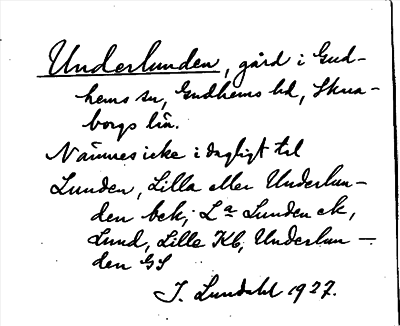 Underlunden, gård i Gud-
hems sn, Gudhems hd, Skara-
borgs län.
Nämnes icke i dagligt tal
Lunden, Lilla eller Underlun-
den bek; La Lunden ek,
Lund, Lille Kb, Underlun-
den GS
J. Lundahl 1927.